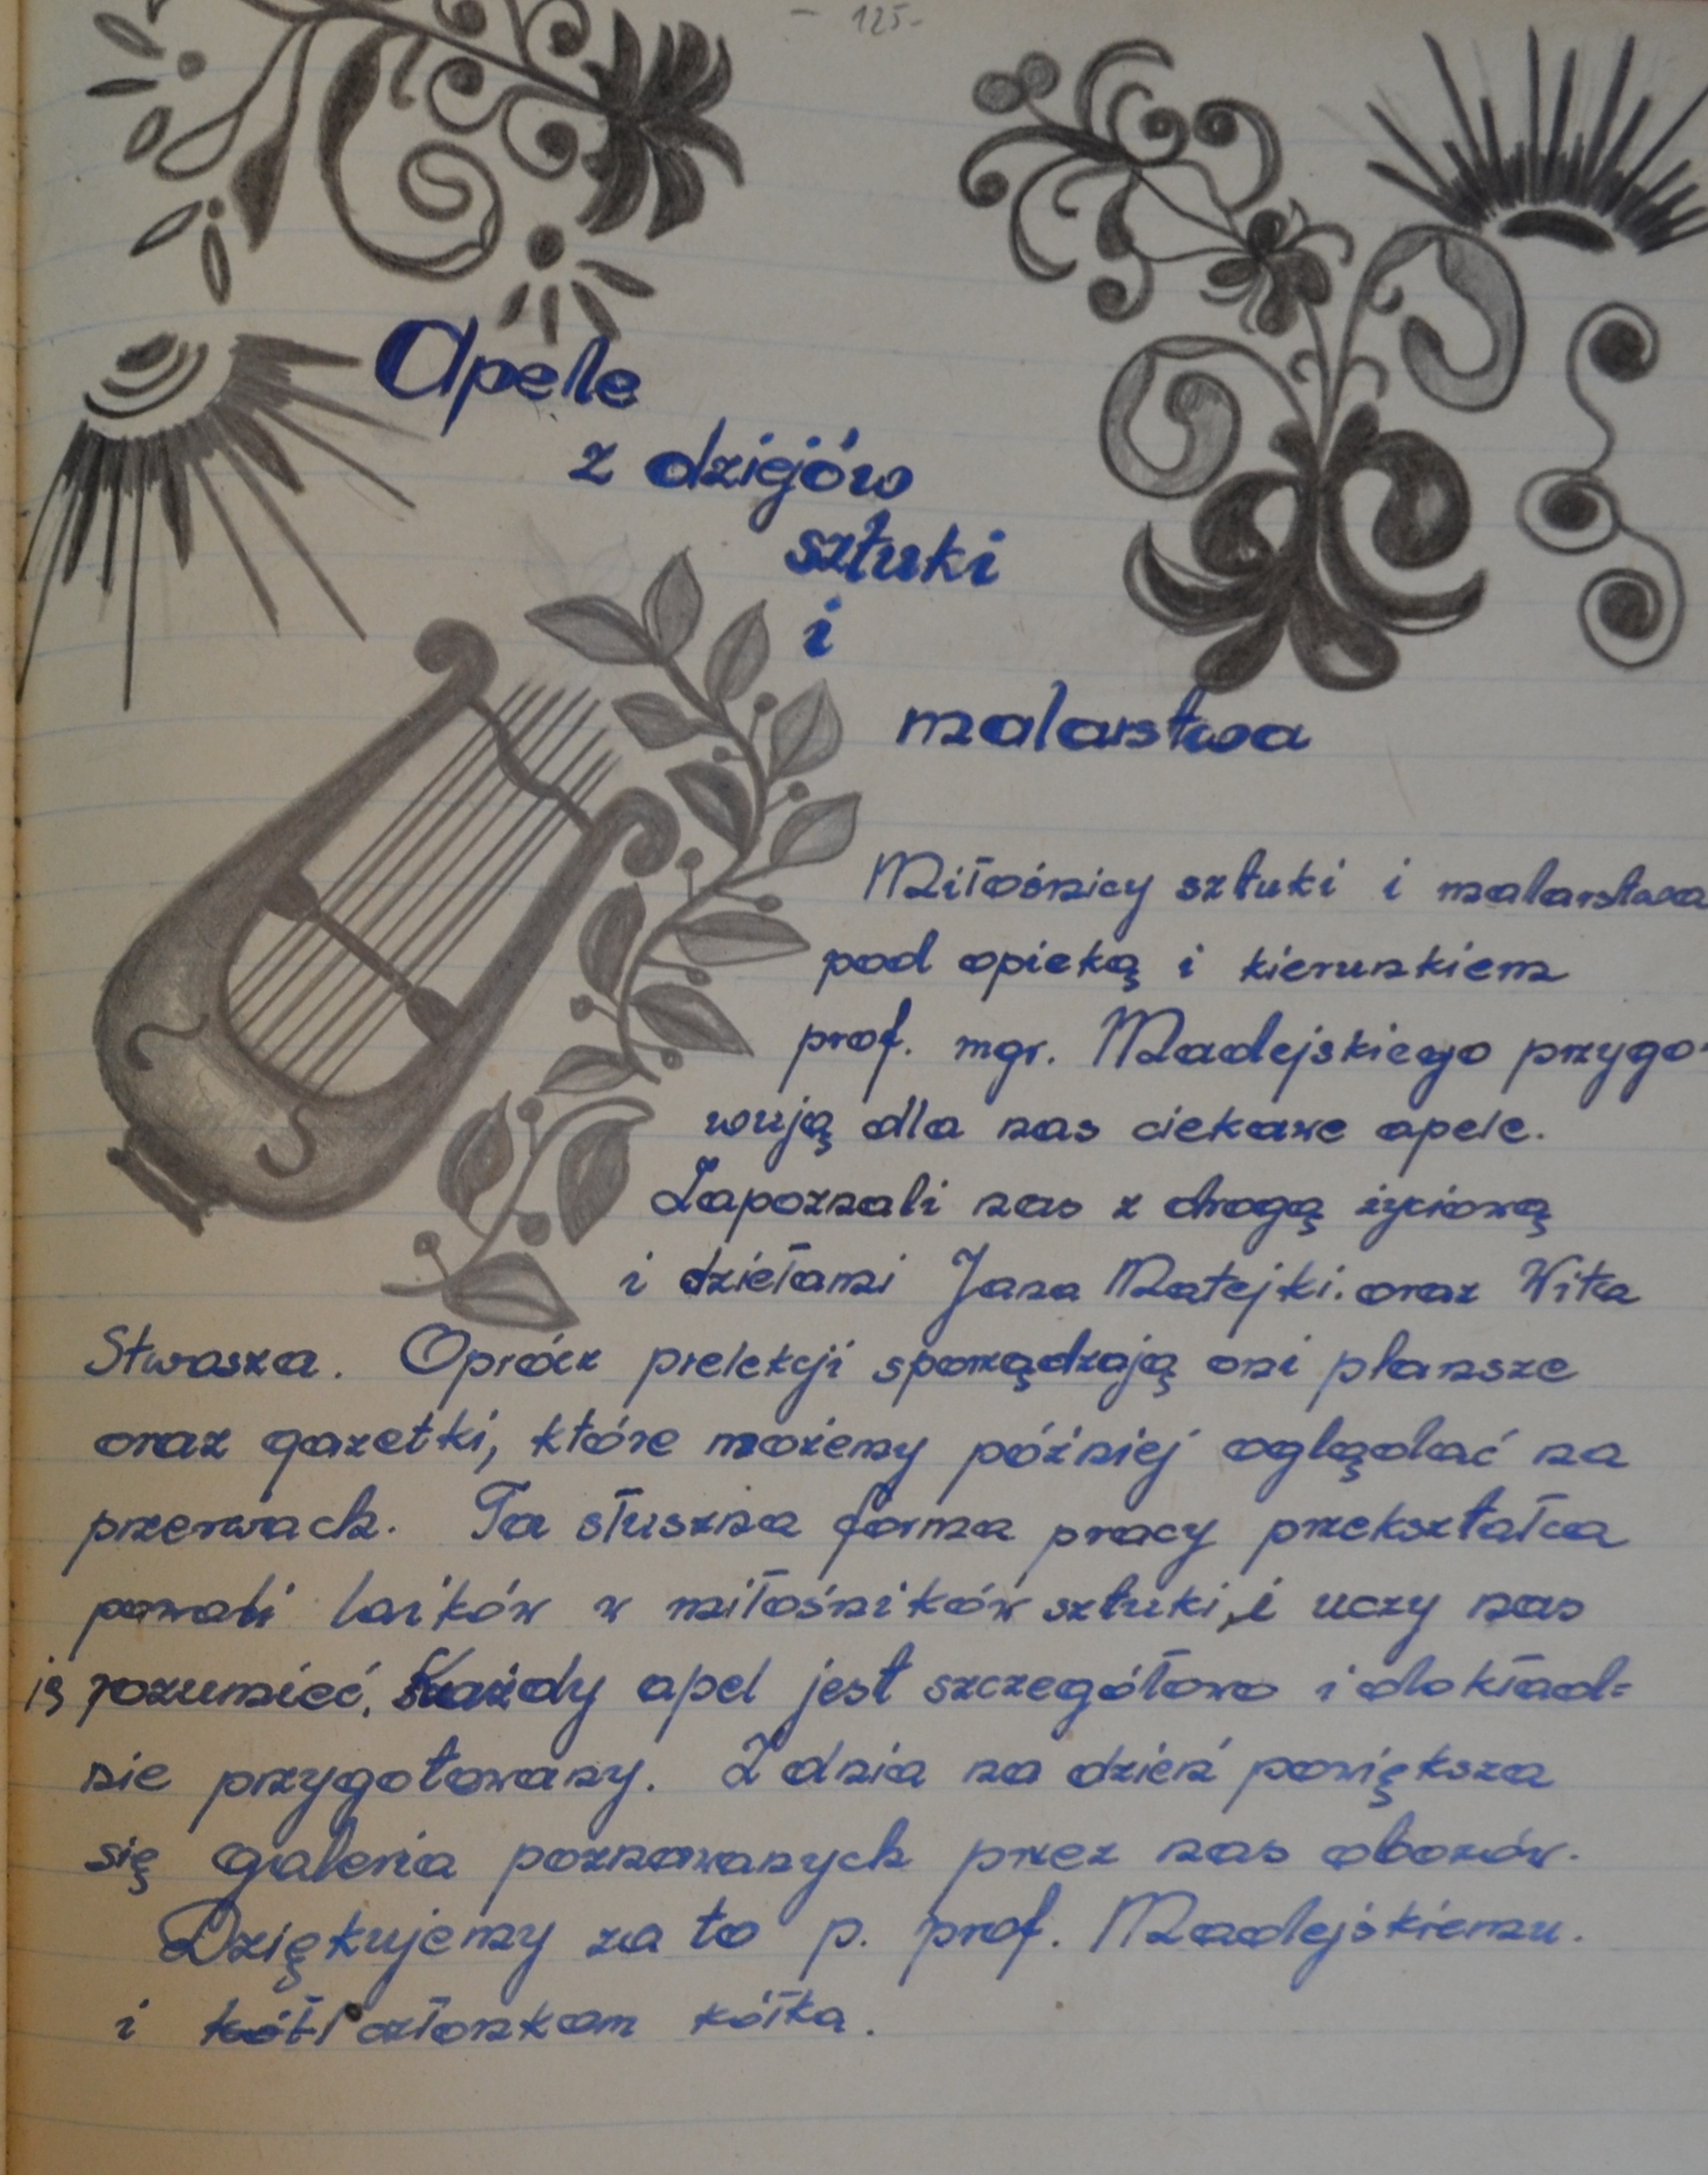 - 125-
Apele
z dziejów
sztuki
i
malarstwa
Miłośnicy sztuki i malarstwa
pod opieką i kierunkiem
prof. mgr. Madejskiego przygo-
wują dla nas ciekawe apele.
Zapoznali nas z drogą życiową
i dziełami Jana Matejki. oraz Wita
Stwosza. Oprócz prelekcji sporządzają oni plansze
oraz gazetki, które możemy później oglądać na
przerwach. Ta słuszna forma pracy przekształca
powoli laików w miłośników sztuki, i uczy nas
ją rozumieć. Każdy apel jest szczegółowo i dokład=
nie przygotowany. Z dnia na dzień powiększa
się galeria poznawanych przez nas obozów.
Dziękujemy za to p. prof. Madejskiemu.
i członkom kółka.